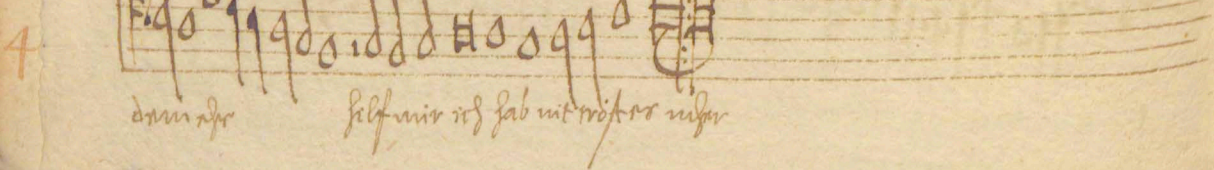 4
dem ehr hilf mir ich hab nit tröster mher